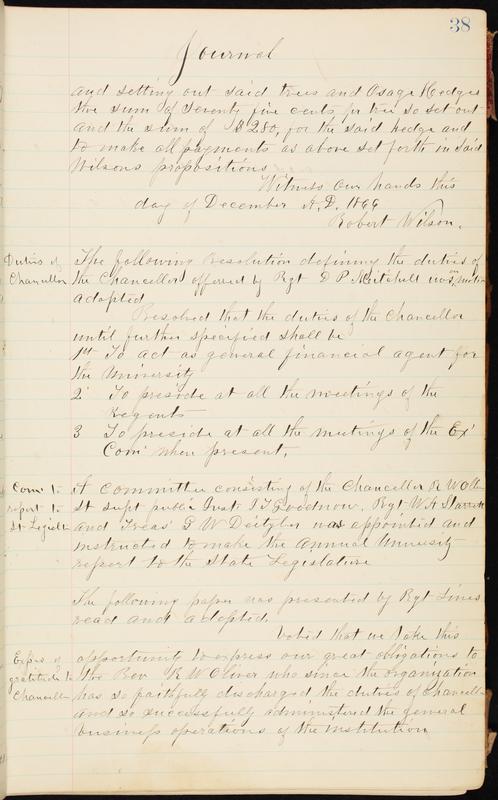 38
Journal
and setting out said trees and Osage Hedges
the sum of Seventy five cents pr tree so set out
and the sum of $280, for the said hedge and
to make all payments as above set forth in said
Wilsons propositions
Witness our hands this
day of December A.D. 1866
Robert Wilson.
Duties of
Chancellor
The following resolution defining the duties of
the Chancellor offered by Rgt D P Mitchell was on motion
adopted
Resolved that the duties of the Chancellor
until further specified shall be
1st To act as general financial agent for
the University
2' To preside at all the meetings of the
Regents
3 To preside at all the meetings of the Ex'
Com' when present.
Com' to
report to
St Legislt
A Committee consisting of the Chancellor R W Oliver
St Supt public Inst I T Goodnow. Rgt W A Starrett
and Treas' G W Deitzler was appointed and
instructed to make the annual University
report to the State Legislature
The following paper was presented by Rgt Lines
read and adopted.
Voted that we take this
Expes of
gratitude to
Chancell
opportunity to express our great obligations to
the Rev R W Oliver who since the organization
has so faithfully discharged the duties of Chancell
and so successfully administered the general
business operations of the Institution